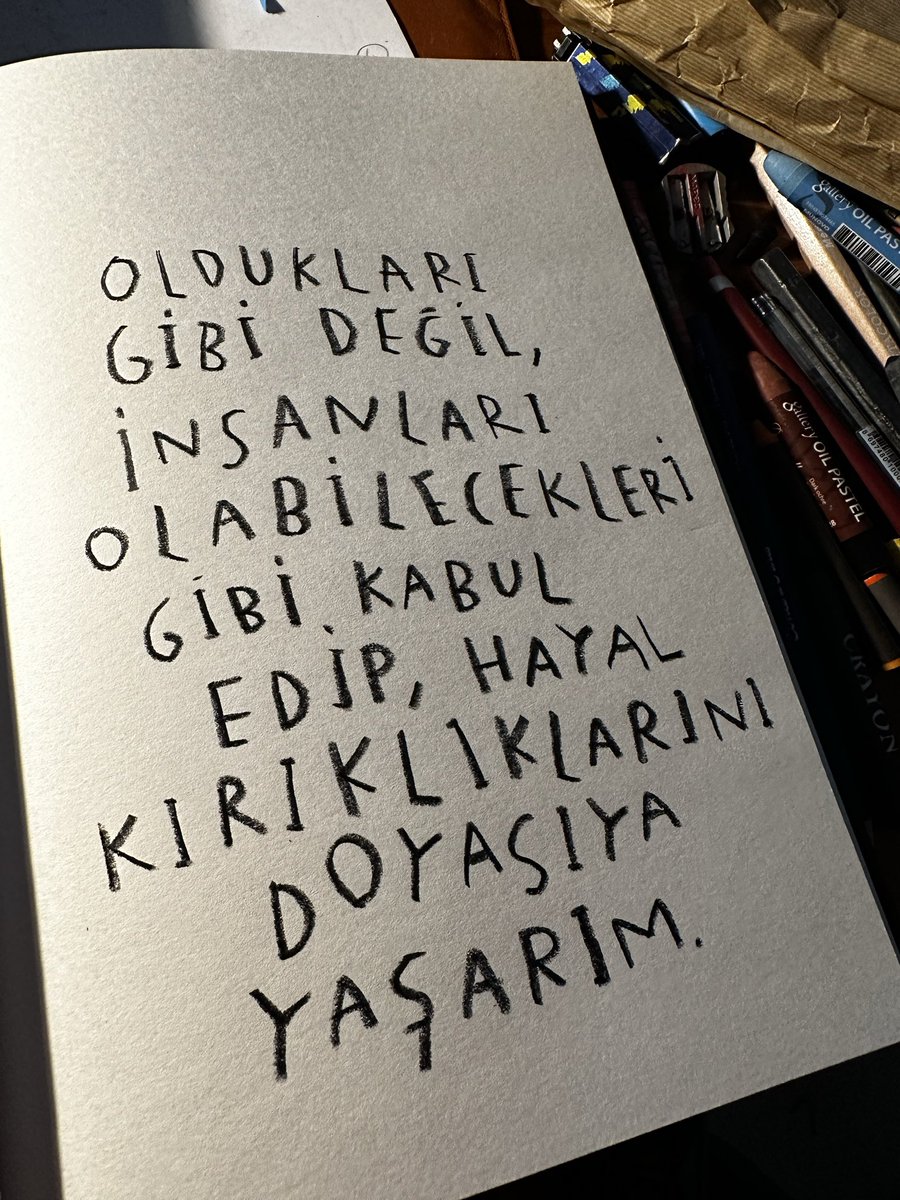 OLDUKLARI
GİBİ DEĞİL,
İNSANLARI
OLABİLECEKLERİ
GİBİ KABUL
EDİP, HAYAL
KIRIKLIKLARINI
DOYASIYA
YAŞARIM.
gallery OIL PASTEL
gallery OIL PASTEL
CRAYON